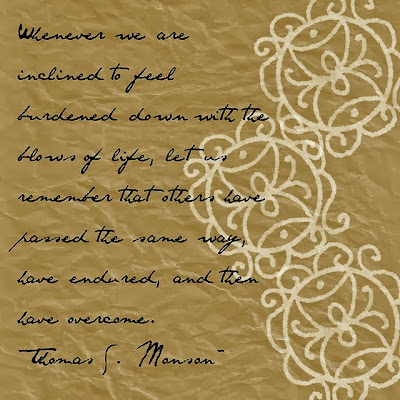 Whenever we are
inclined to feel
burdened down with the
blows of life, let us
remember that others have
passed the same way,
have endured, and then
have overcome.
Thomas S. Monson